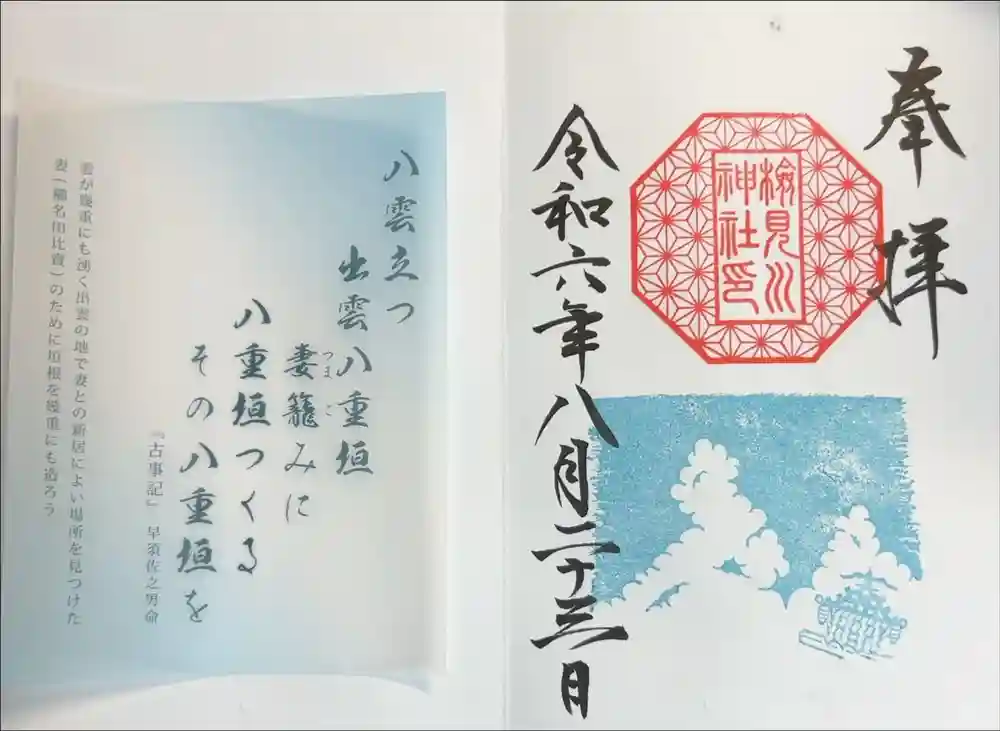 奉拝
検見川
神社印
令和六年八月二十三日
八雲立つ
出雲八重垣
妻籠みに
つまご
八重垣つくる
その八重垣を
『古事記』 早須佐之男命
雲が幾重にも湧く出雲の地で妻との新居によい場所を見つけた
妻(櫛名田比賣)のために垣根を幾重にも造ろう